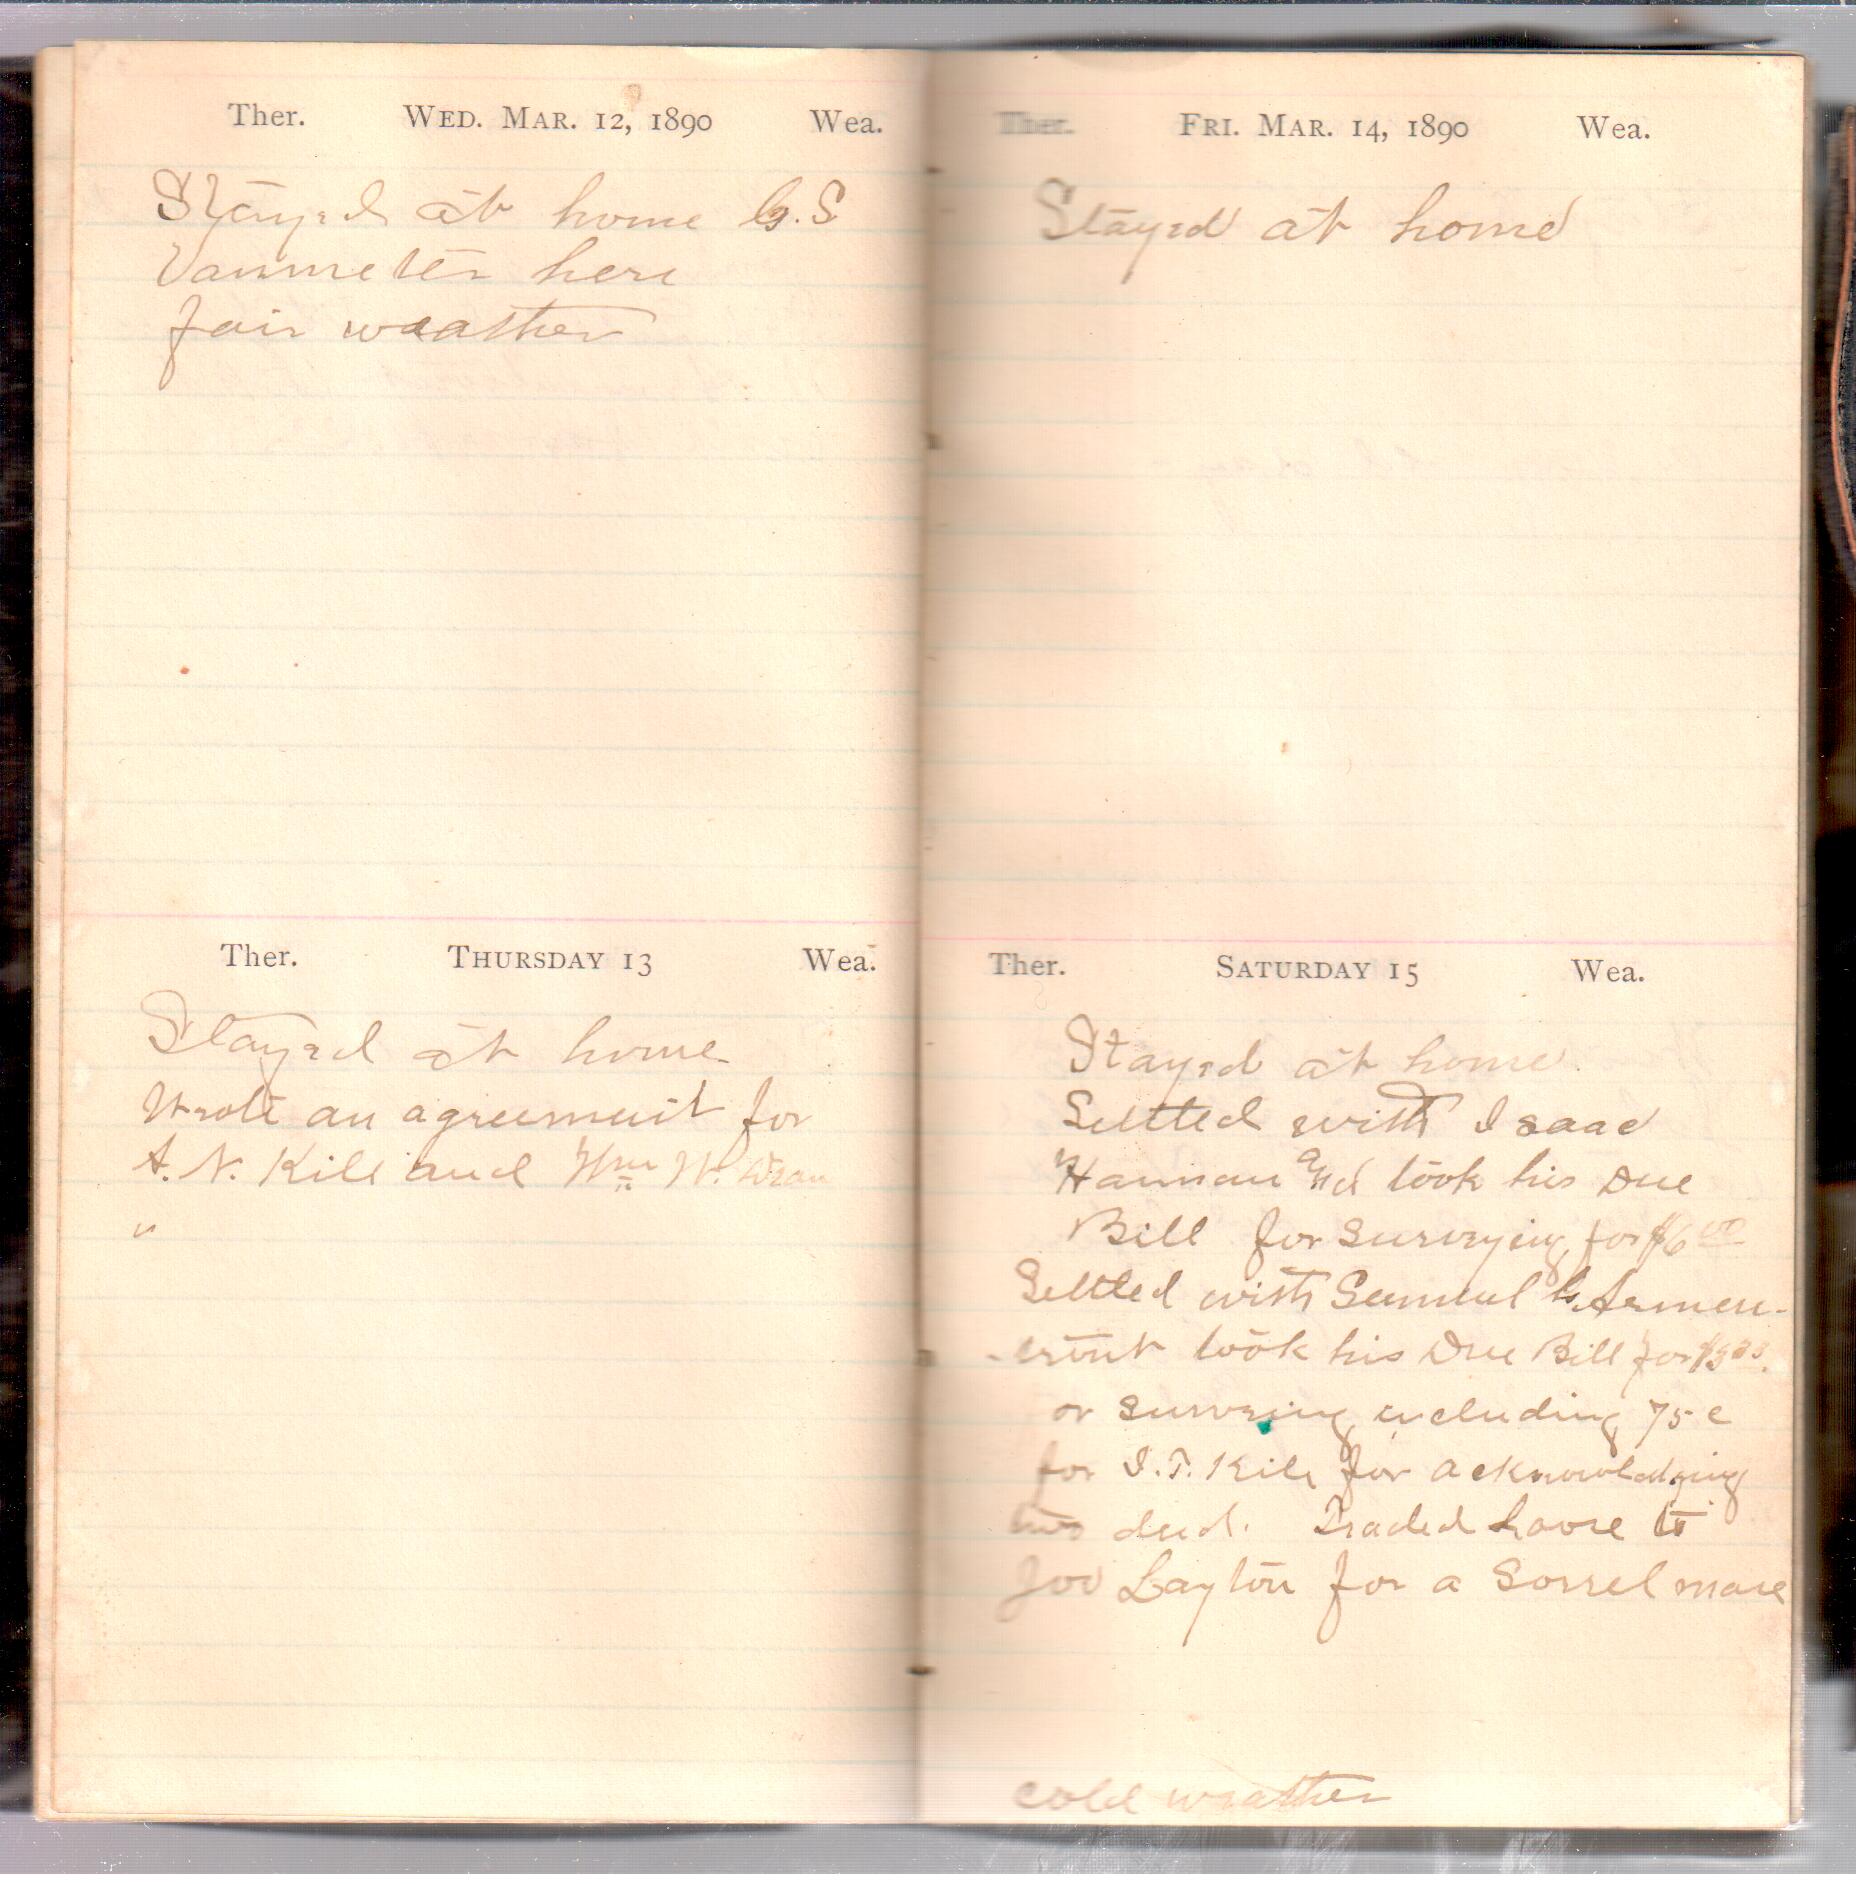 Ther. WED. MAR. 12, 1890 Wea.
Stayed at home G.S
Vanmeter here
fair weather
Ther. THURSDAY 13 Wea.
Stayed at home
Wrote an agreement for
A. N. Kile and Wm W.
"
Ther. FRI. MAR. 14, 1890 Wea.
Stayed at home
Ther. SATURDAY 15 Wea.
Stayed at home.
Settled with Isaac
Harman and took his Due
Bill for surveying for $6 00
Settled with Samuel G. Armen-
-trout took his Due Bill for
or surveing including 75 c
for I. T. Kile for acknowledging
two deed. Traded horse to
Joe Layton for a Sorrel mare
cold weather